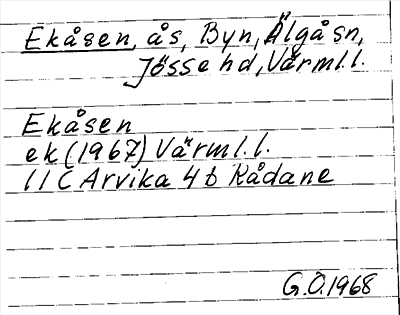 Ekåsen, ås, Byn, Älgåsn,
Jösse hd, Värml.l.
Ekåsen
ek (1967) Värml.l.
11 C Arvika 4 b Rådane
G.Ö.1968